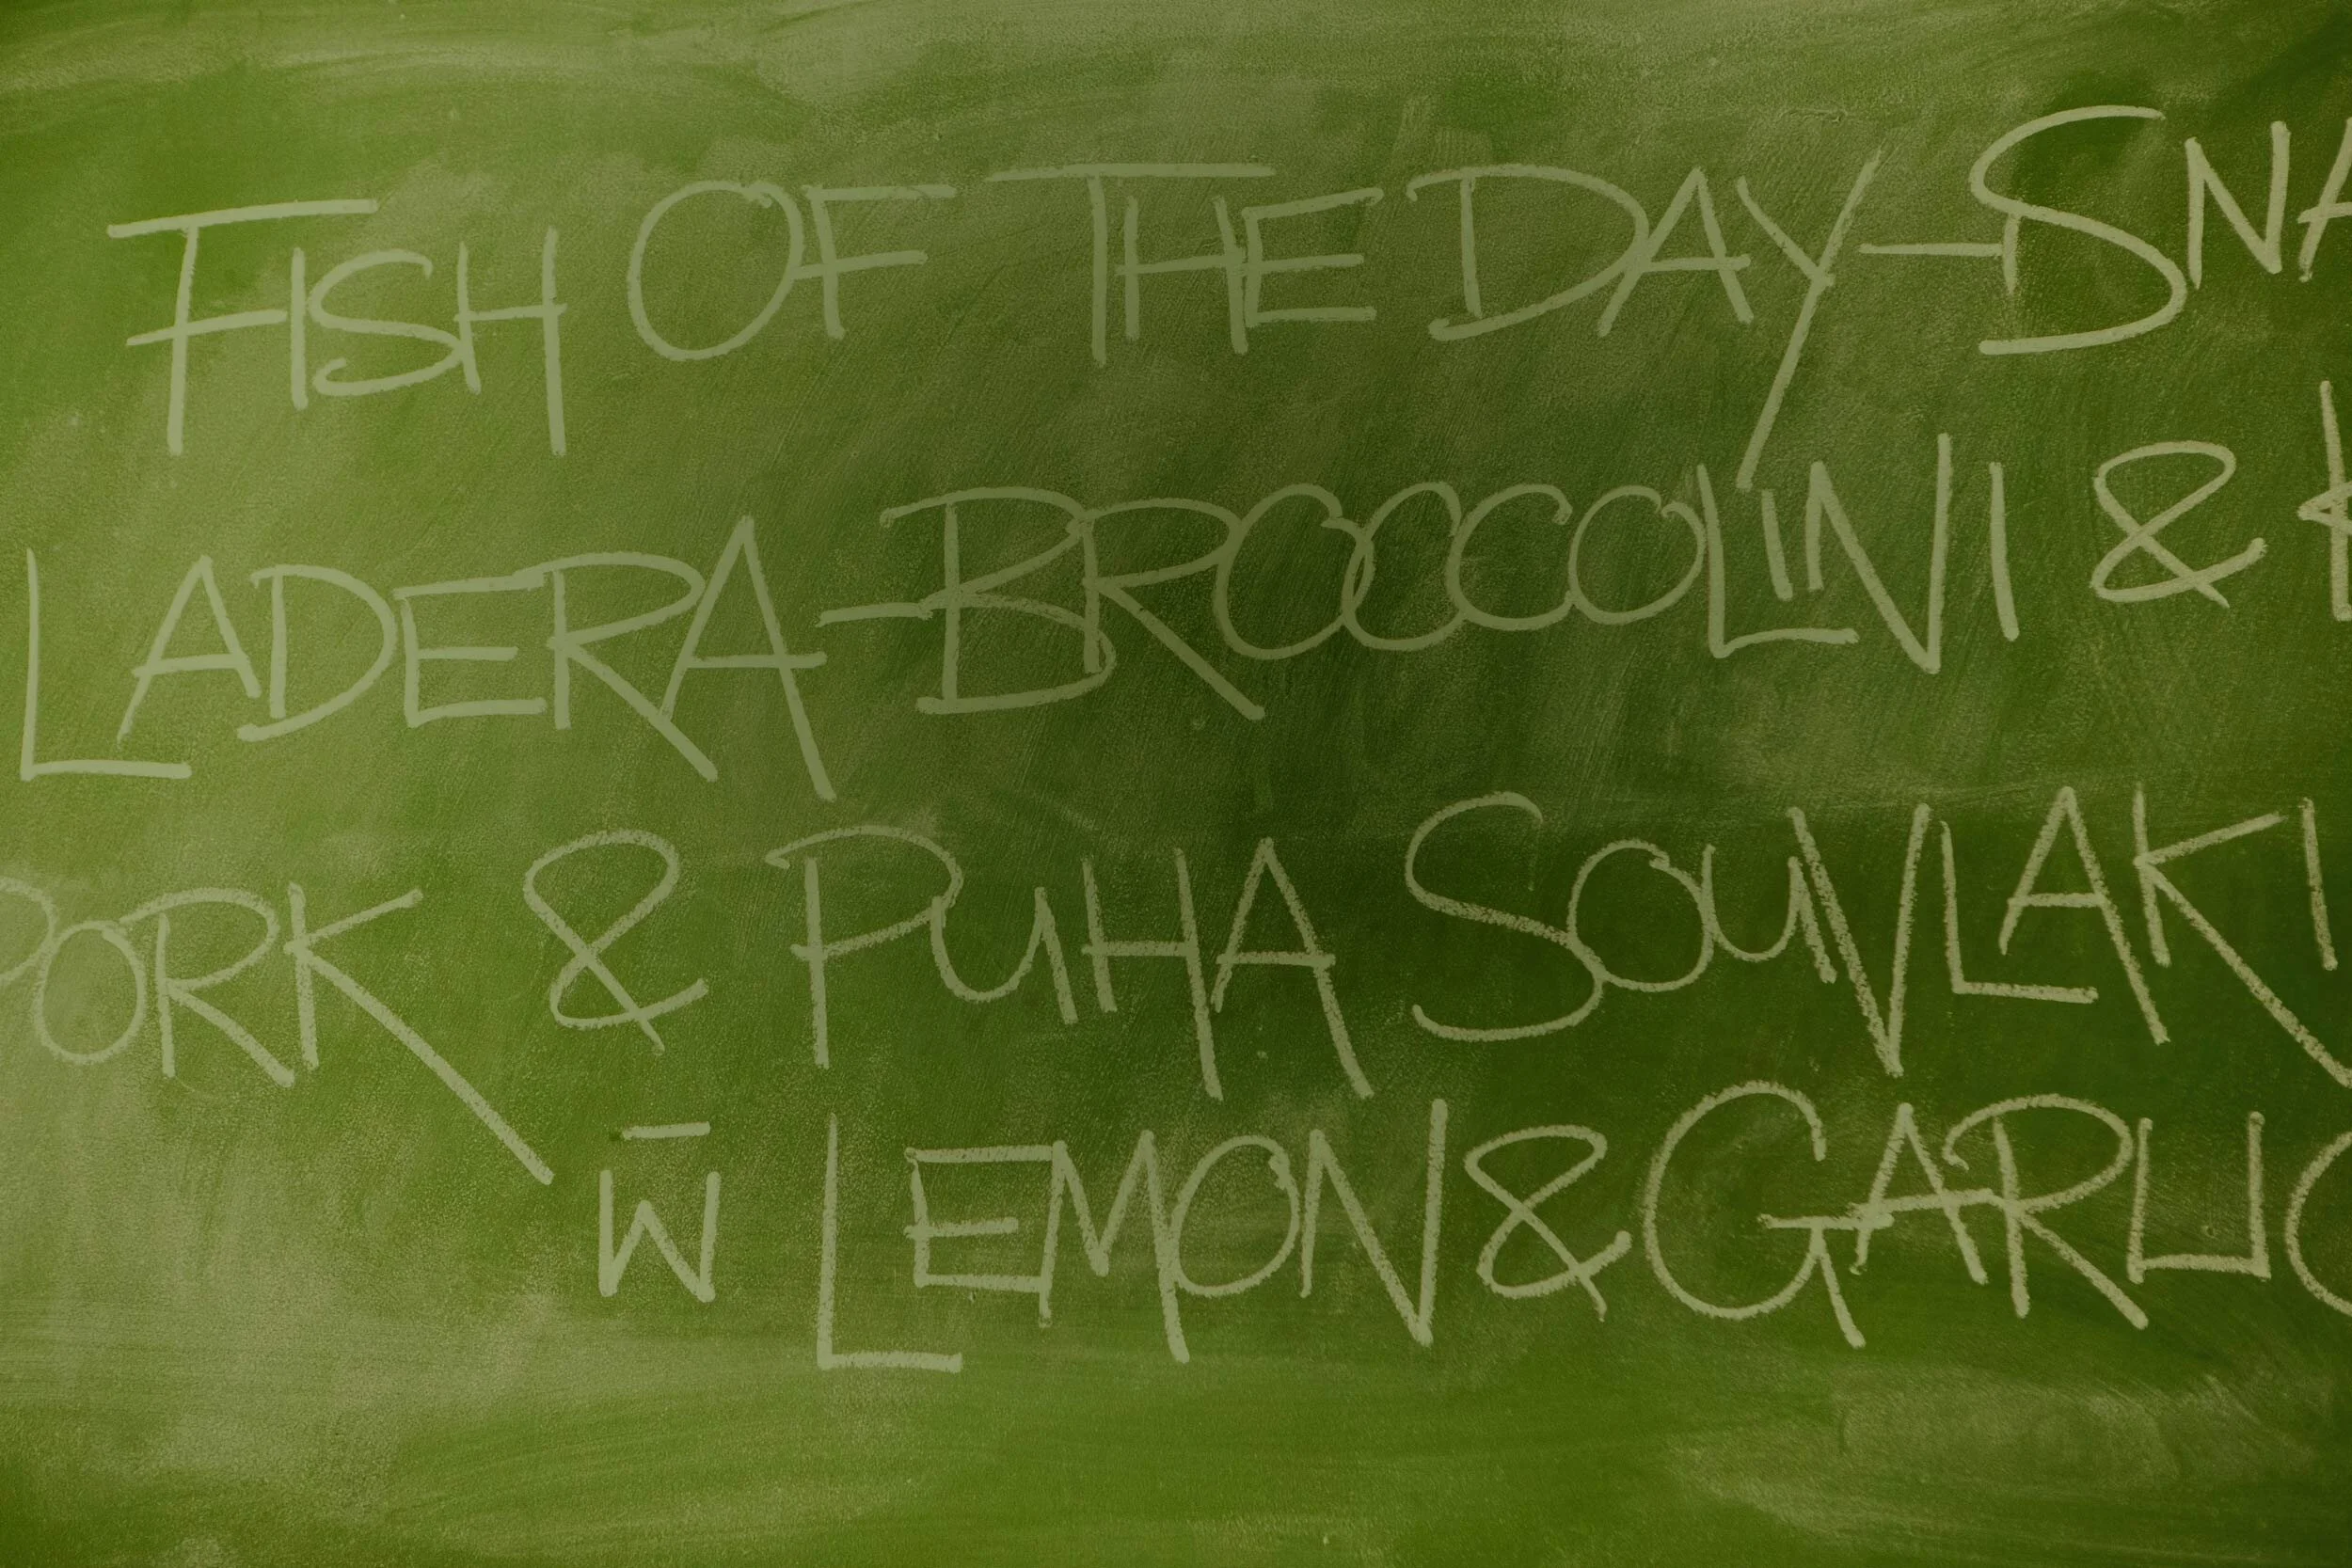 FISH OF THE DAY-SNA
LADERA-BROCCOLINI &
PORK & PUHA SOUVLAKI
W̄ LEMON & GARLIC